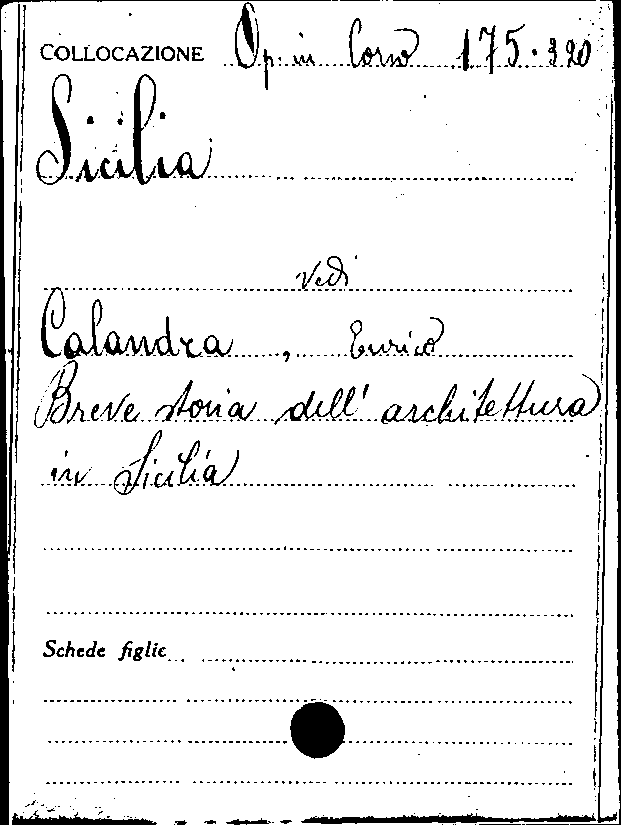 COLLOCAZIONE Op. in Corso 175.320
Sicilia
vedi
Calandra, Enrico
Breve storia dell' architettura
in Sicilia
Schede figlie